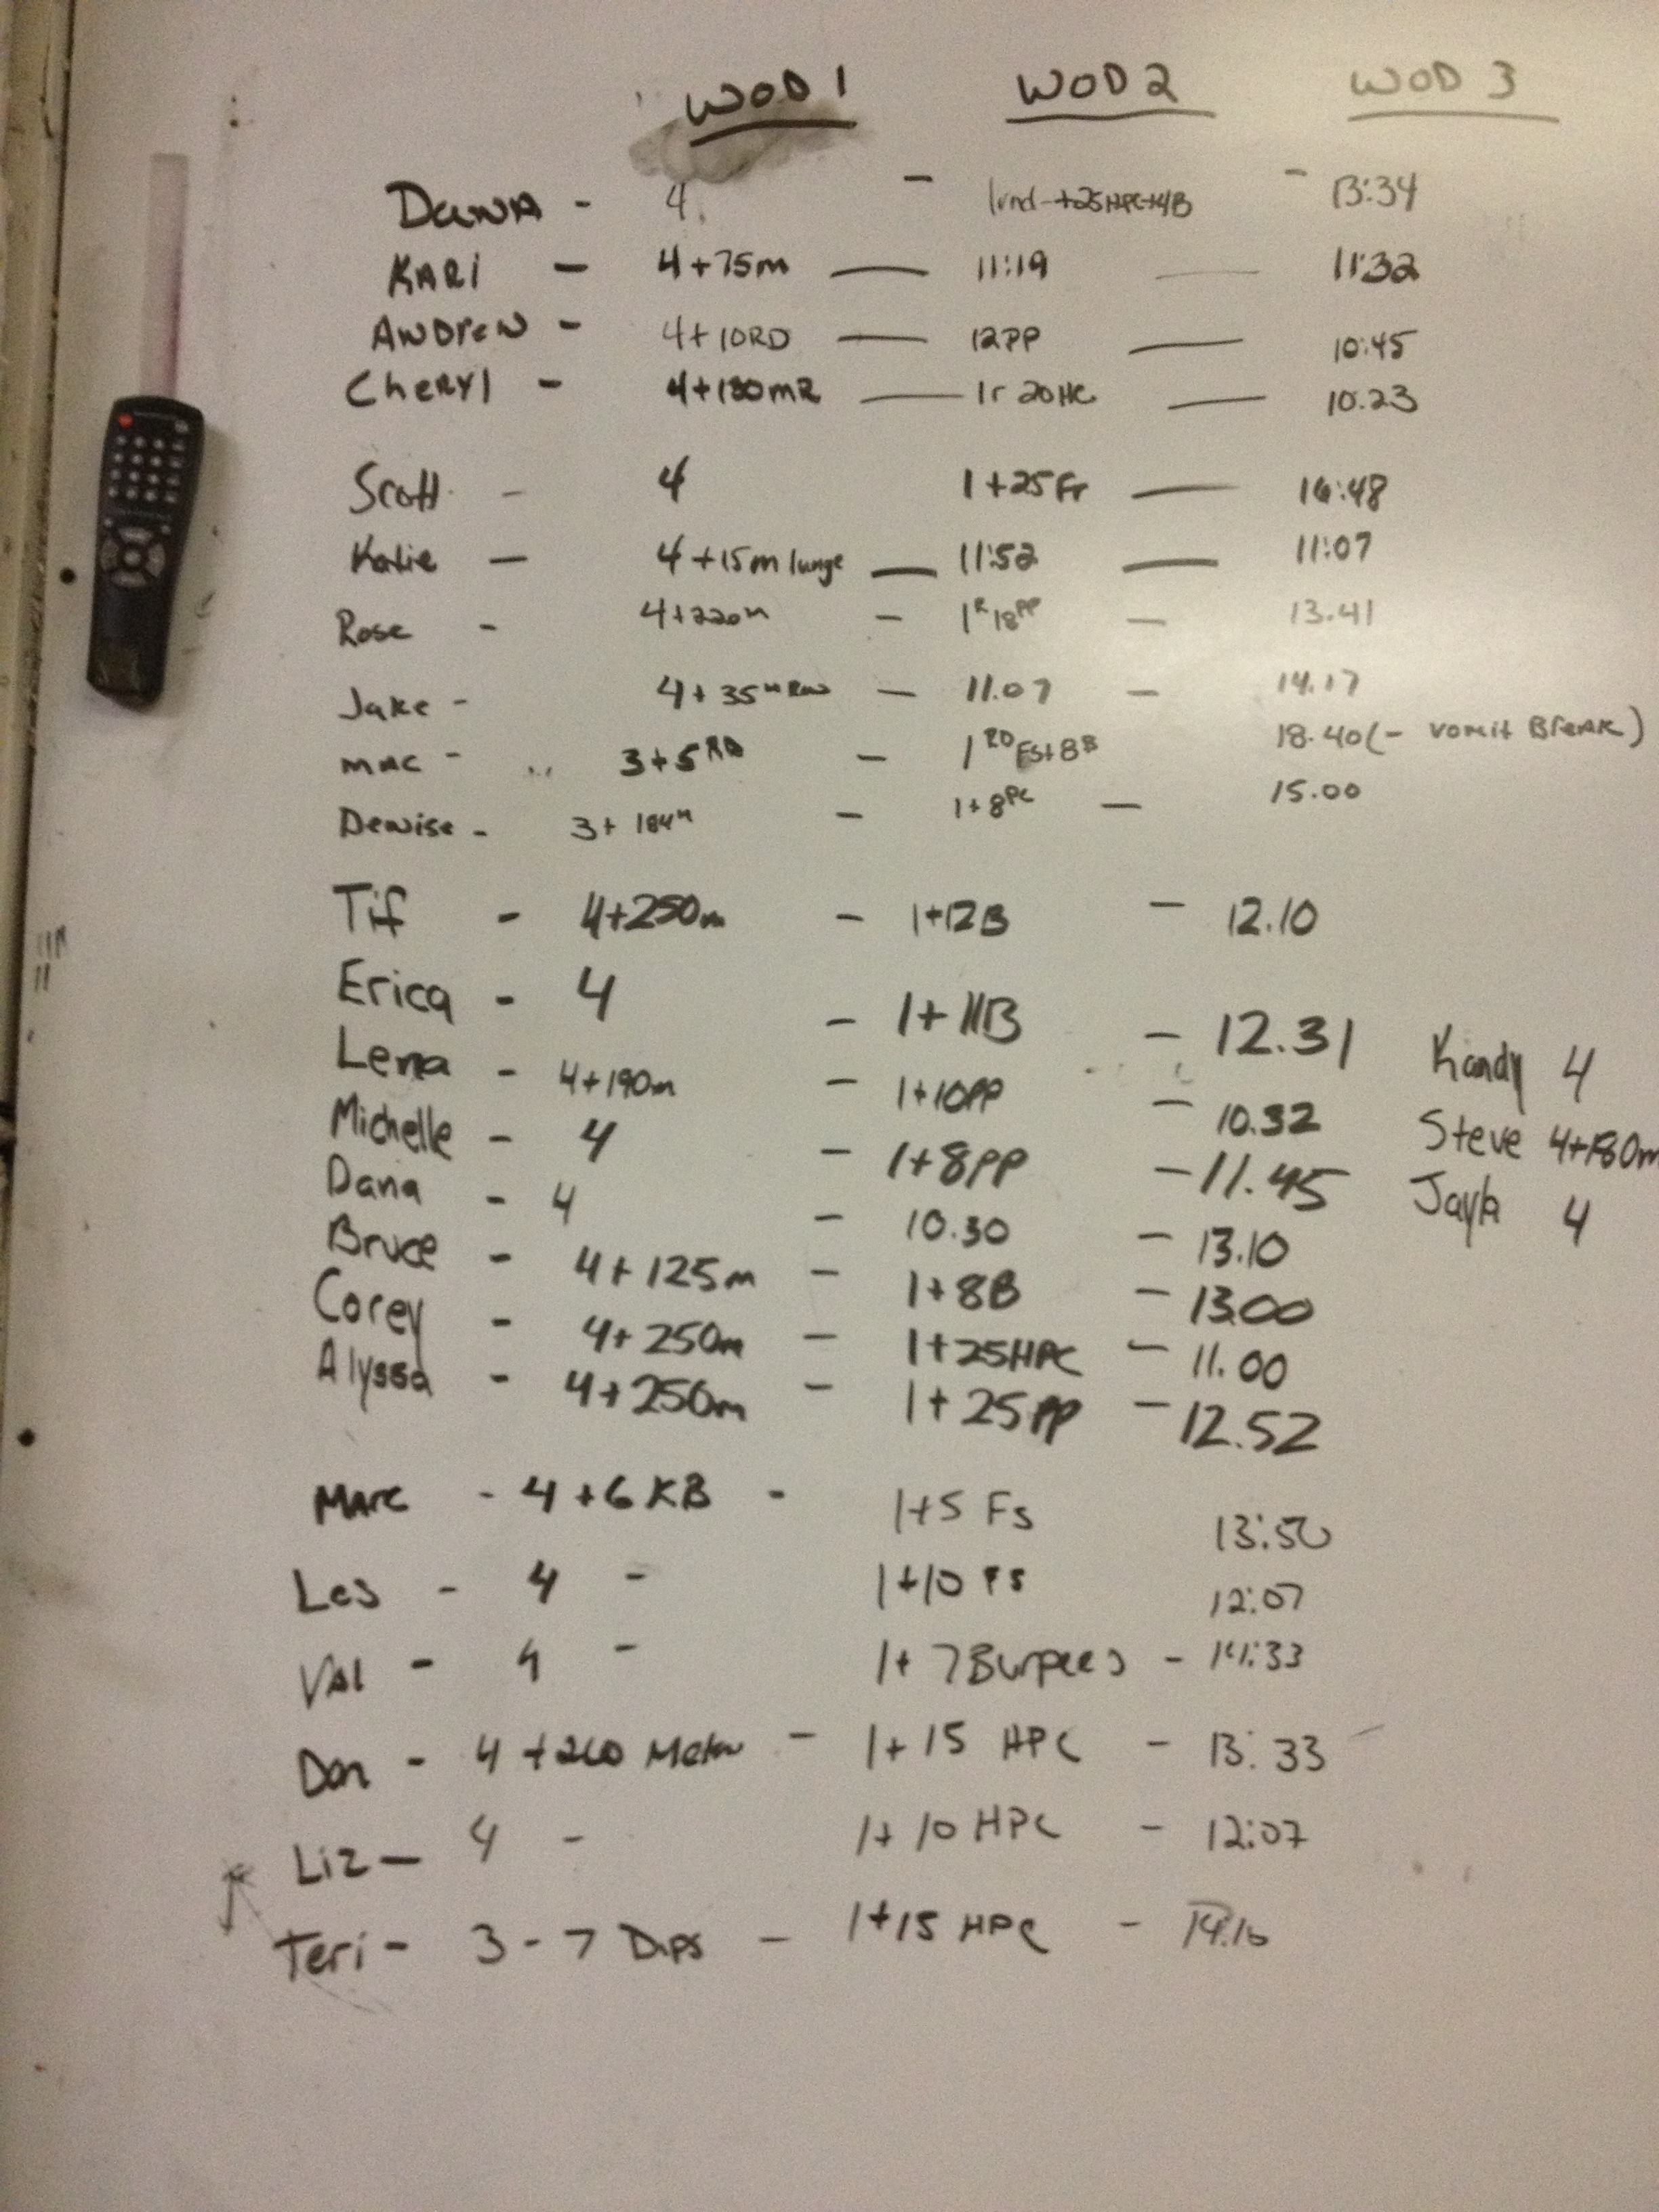 WOD 1 WOD 2 WOD 3
DawnA - 4 - 1rnd +25HPC+4B - 13:34
KARi - 4+75m — 11:19 — 11:32
ANDreW - 4+10RD — 12PP — 10:45
CheRYl - 4+180mR — 1r 20HC — 10:23
Scott - 4 1+25Fr — 16:48
Katie — 4+15m lunge — 11:52 — 11:07
Rose - 4+220m - 1R 18PP - 13.41
Jake - 4+35m Row - 11.07 - 14.17
MAC - 3+5RD - 1RD Fs+8B 18.40(- vomit BreAK)
Denise - 3+184m - 1+8PC - 15.00
Tif - 4+250m - 1+12B - 12.10
Erica - 4 - 1+11B - 12.31 Kandy 4
Lena - 4+190m - 1+10PP - 10.32 Steve 4+180m
Michelle - 4 - 1+8PP - 11.45 Jayla 4
Dana - 4 - 10.30 - 13.10
Bruce - 4+125m - 1+8B - 13.00
Corey - 4+250m - 1+25HPC - 11.00
Alyssa - 4+250m - 1+25PP - 12.52
MArc - 4+6 KB - 1+5 Fs 13:50
Les - 4 - 1+10 Fs 12:07
VAl - 4 - 1+ 7 Burpees - 14:33
Don - 4+260 Meter - 1+15 HPC - 13:33
Liz — 4 - 1+10 HPC - 12:07
Teri - 3 - 7 Dips - 1+15 HPC - 14.16